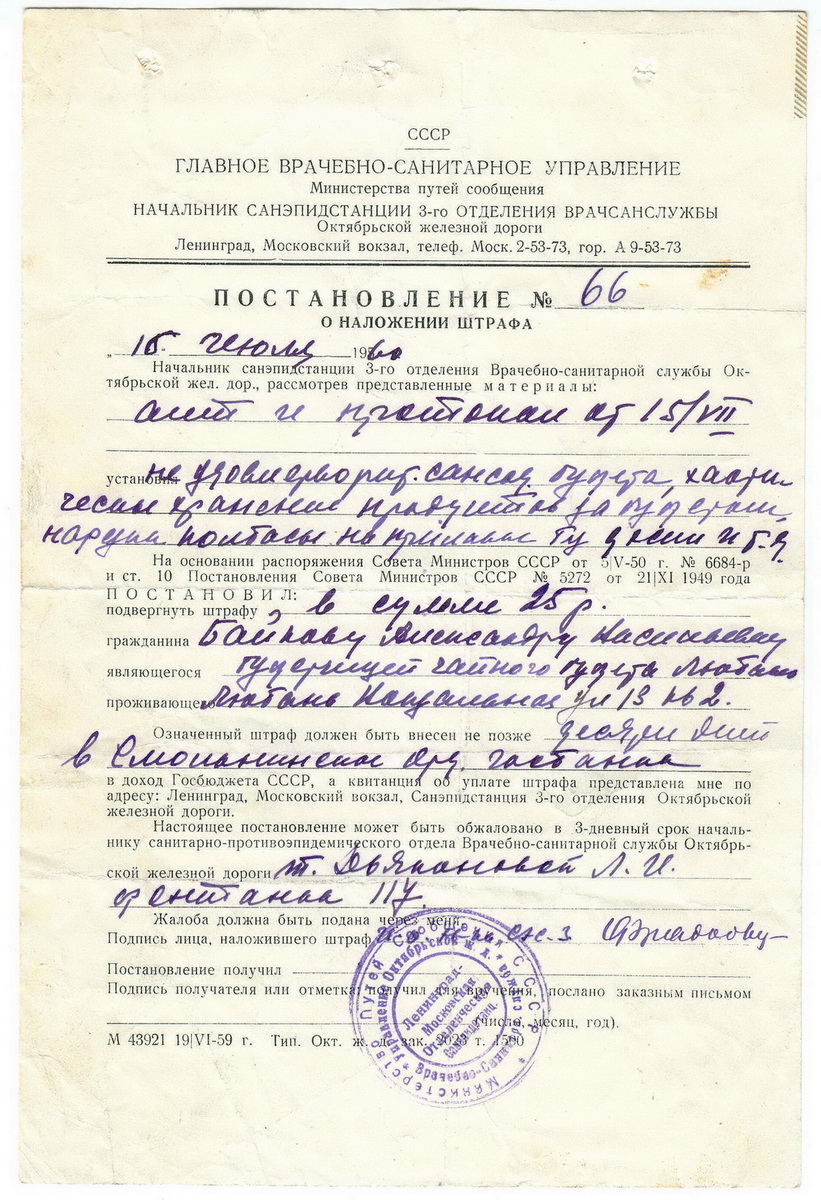 СССР
ГЛАВНОЕ ВРАЧЕБНО-САНИТАРНОЕ УПРАВЛЕНИЕ
Министерства путей сообщения
НАЧАЛЬНИК САНЭПИДСТАНЦИИ 3-го ОТДЕЛЕНИЯ ВРАЧСАНСЛУЖБЫ
Октябрьской железной дороги
Ленинград, Московский вокзал, телеф. Моск. 2-53-73, гор. А 9-53-73
ПОСТАНОВЛЕНИЕ № 66
О НАЛОЖЕНИИ ШТРАФА
„15" июля 1960
Начальник санэпидстанции 3-го отделения Врачебно-санитарной службы Ок-
тябрьской жел. дор., рассмотрев представленные материалы:
акт и протокол от 15/VII
установил не удовлетворит. сансод. буфета, хаоти-
ческое хранение продуктов за буфетом,
нарезки колбасы на прилавке и т.д.
На основании распоряжения Совета Министров СССР от 5|V-50 г. № 6684-р
и ст. 10 Постановления Совета Министров СССР № 5272 от 21|XI 1949 года
ПОСТАНОВИЛ:
подвергнуть штрафу в сумме 25 р.
гражданина Байкову Александру Васильевну
являющегося буфетчицей чайного буфета Любань
проживающего Любань Вокзальная ул 13 кв 2.
Означенный штраф должен быть внесен не позже десяти дней
в Смольнинское отд. госбанка
в доход Госбюджета СССР, а квитанция об уплате штрафа представлена мне по
адресу: Ленинград, Московский вокзал, Санэпидстанция 3-го отделения Октябрьской
железной дороги.
Настоящее постановление может быть обжаловано в 3-дневный срок началь-
нику санитарно-противоэпидемического отдела Врачебно-санитарной службы Октябрь-
ской железной дороги т. Дьяконовой Л. И.
Фонтанка 117.
Жалоба должна быть подана через меня.
Подпись лица, наложившего штраф
Постановление получил
Подпись получателя или отметка: получил для вручения, послано заказным письмом
(число, месяц, год).
М 43921 19|VI-59 г. Тип. Окт. ж. д. зак. т. 1500
Министерство Путей Сообщения СССР
Врачебно-Санитарная служба управления Октябрьской ж. д.
Ленинград-
Московская
Отделенческая